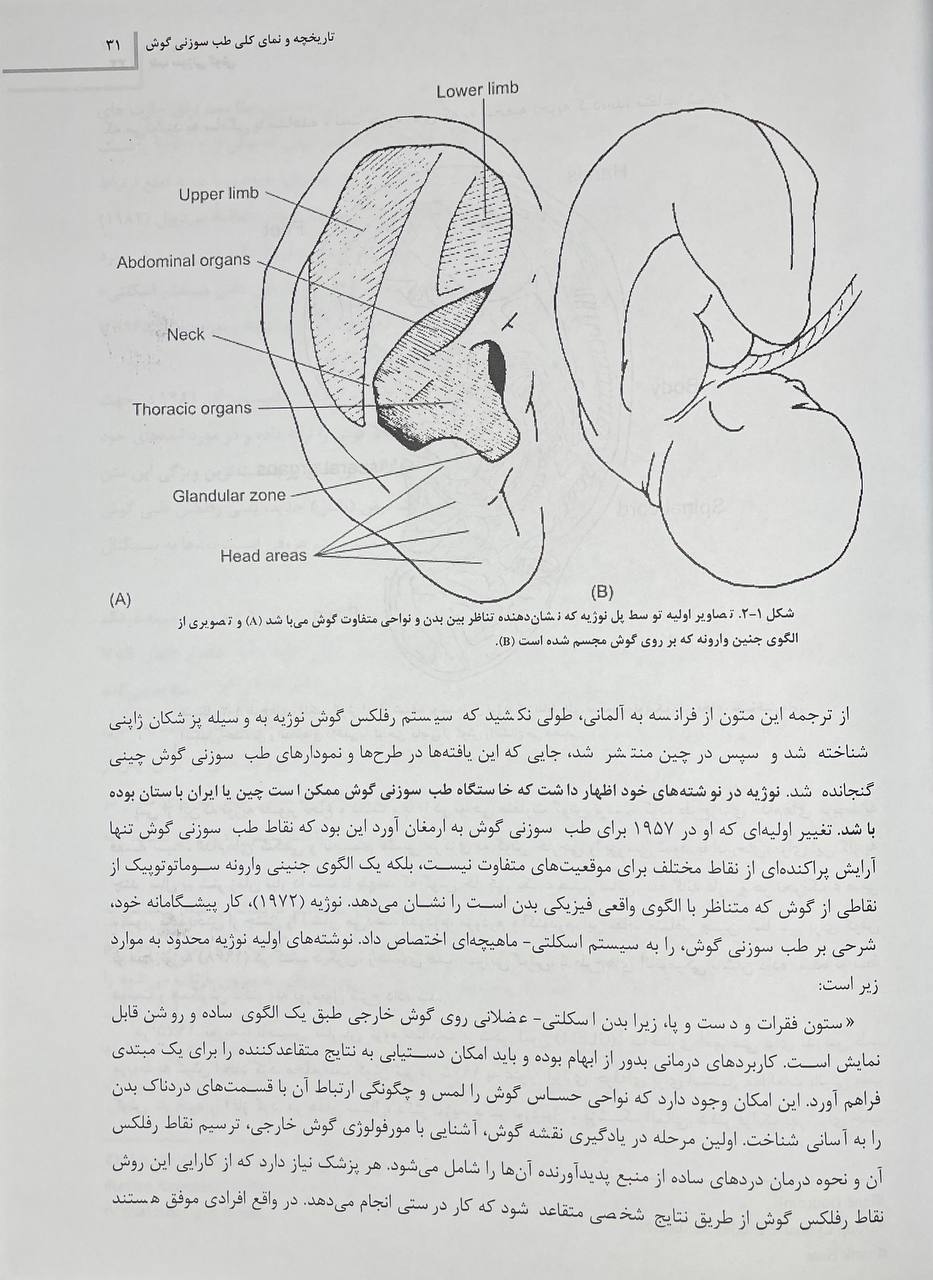 تاریخچه و نمای کلی طب سوزنی گوش ۳۱
Lower limb
Upper limb
Abdominal organs
Neck
Thoracic organs
Glandular zone
Head areas
(A)
(B)
شکل ۱-۲. تصاویر اولیه توسط پل نوژیه که نشان‌دهنده تناظر بین بدن و نواحی متفاوت گوش می‌باشد (A) و تصویری از
الگوی جنین وارونه که بر روی گوش مجسم شده است (B).
از ترجمه این متون از فرانسه به آلمانی، طولی نکشید که سیستم رفلکس گوش نوژیه به وسیله پزشکان ژاپنی
شناخته شد و سپس در چین منتشر شد، جایی که این یافته‌ها در طرح‌ها و نمودارهای طب سوزنی گوش چینی
گنجانده شد. نوژیه در نوشته‌های خود اظهار داشت که خاستگاه طب سوزنی گوش ممکن است چین یا ایران باستان بوده
باشد. تغییر اولیه‌ای که او در ۱۹۵۷ برای طب سوزنی گوش به ارمغان آورد این بود که نقاط طب سوزنی گوش تنها
آرایش پراکنده‌ای از نقاط مختلف برای موقعیت‌های متفاوت نیست، بلکه یک الگوی جنینی وارونه سوماتوتوپیک از
نقاطی از گوش که متناظر با الگوی واقعی فیزیکی بدن است را نشان می‌دهد. نوژیه (۱۹۷۲)، کار پیشگامانه خود،
شرحی بر طب سوزنی گوش، را به سیستم اسکلتی- ماهیچه‌ای اختصاص داد. نوشته‌های اولیه نوژیه محدود به موارد
زیر است:
«ستون فقرات و دست و پا، زیرا بدن اسکلتی- عضلانی روی گوش خارجی طبق یک الگوی ساده و روشن قابل
نمایش است. کاربردهای درمانی بدور از ابهام بوده و باید امکان دستیابی به نتایج متقاعدکننده را برای یک مبتدی
فراهم آورد. این امکان وجود دارد که نواحی حساس گوش را لمس و چگونگی ارتباط آن با قسمت‌های دردناک بدن
را به آسانی شناخت. اولین مرحله در یادگیری نقشه گوش، آشنایی با مورفولوژی گوش خارجی، ترسیم نقاط رفلکس
آن و نحوه درمان دردهای ساده از منبع پدیدآورنده آن‌ها را شامل می‌شود. هر پزشک نیاز دارد که از کارایی این روش
نقاط رفلکس گوش از طریق نتایج شخصی متقاعد شود که کار درستی انجام می‌دهد. در واقع افرادی موفق هستند